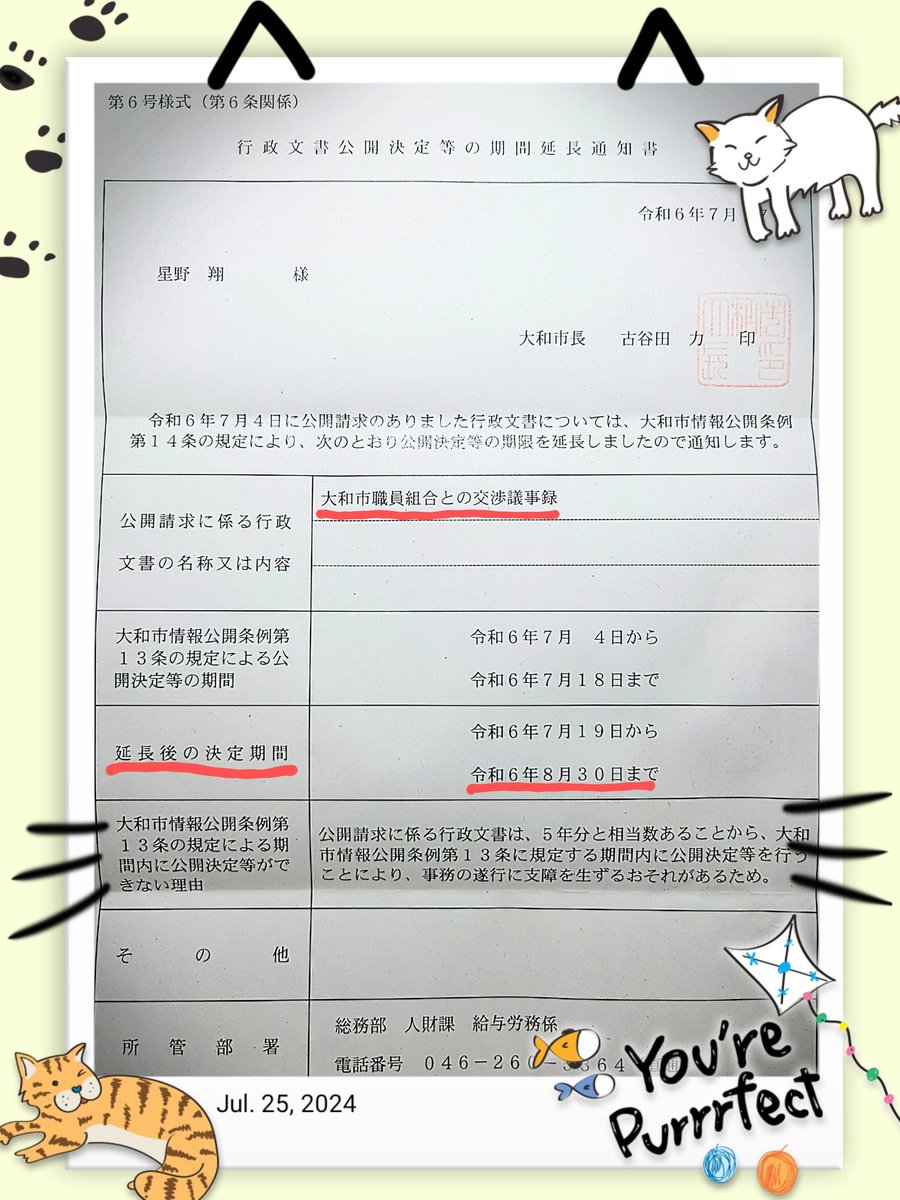 第６号様式（第６条関係）
行政文書公開決定等の期間延長通知書
令和６年７月
星野　翔　　　様
大和市長　　古谷田　力　　印
令和６年７月４日に公開請求のありました行政文書については、大和市情報公開条例
第１４条の規定により、次のとおり公開決定等の期限を延長しましたので通知します。
公開請求に係る行政
文書の名称又は内容
大和市職員組合との交渉議事録
大和市情報公開条例第
１３条の規定による公
開決定等の期間
令和６年７月　４日から
令和６年７月１８日まで
延長後の決定期間
令和６年７月１９日から
令和６年８月３０日まで
大和市情報公開条例第
１３条の規定による期
間内に公開決定等がで
きない理由
公開請求に係る行政文書は、５年分と相当数あることから、大和
市情報公開条例第１３条に規定する期間内に公開決定等を行う
ことにより、事務の遂行に支障を生ずるおそれがあるため。
そ　の　他
所管部署
総務部　人財課　給与労務係
電話番号　０４６－２６０－
Jul. 25, 2024
You're
Purrrfect